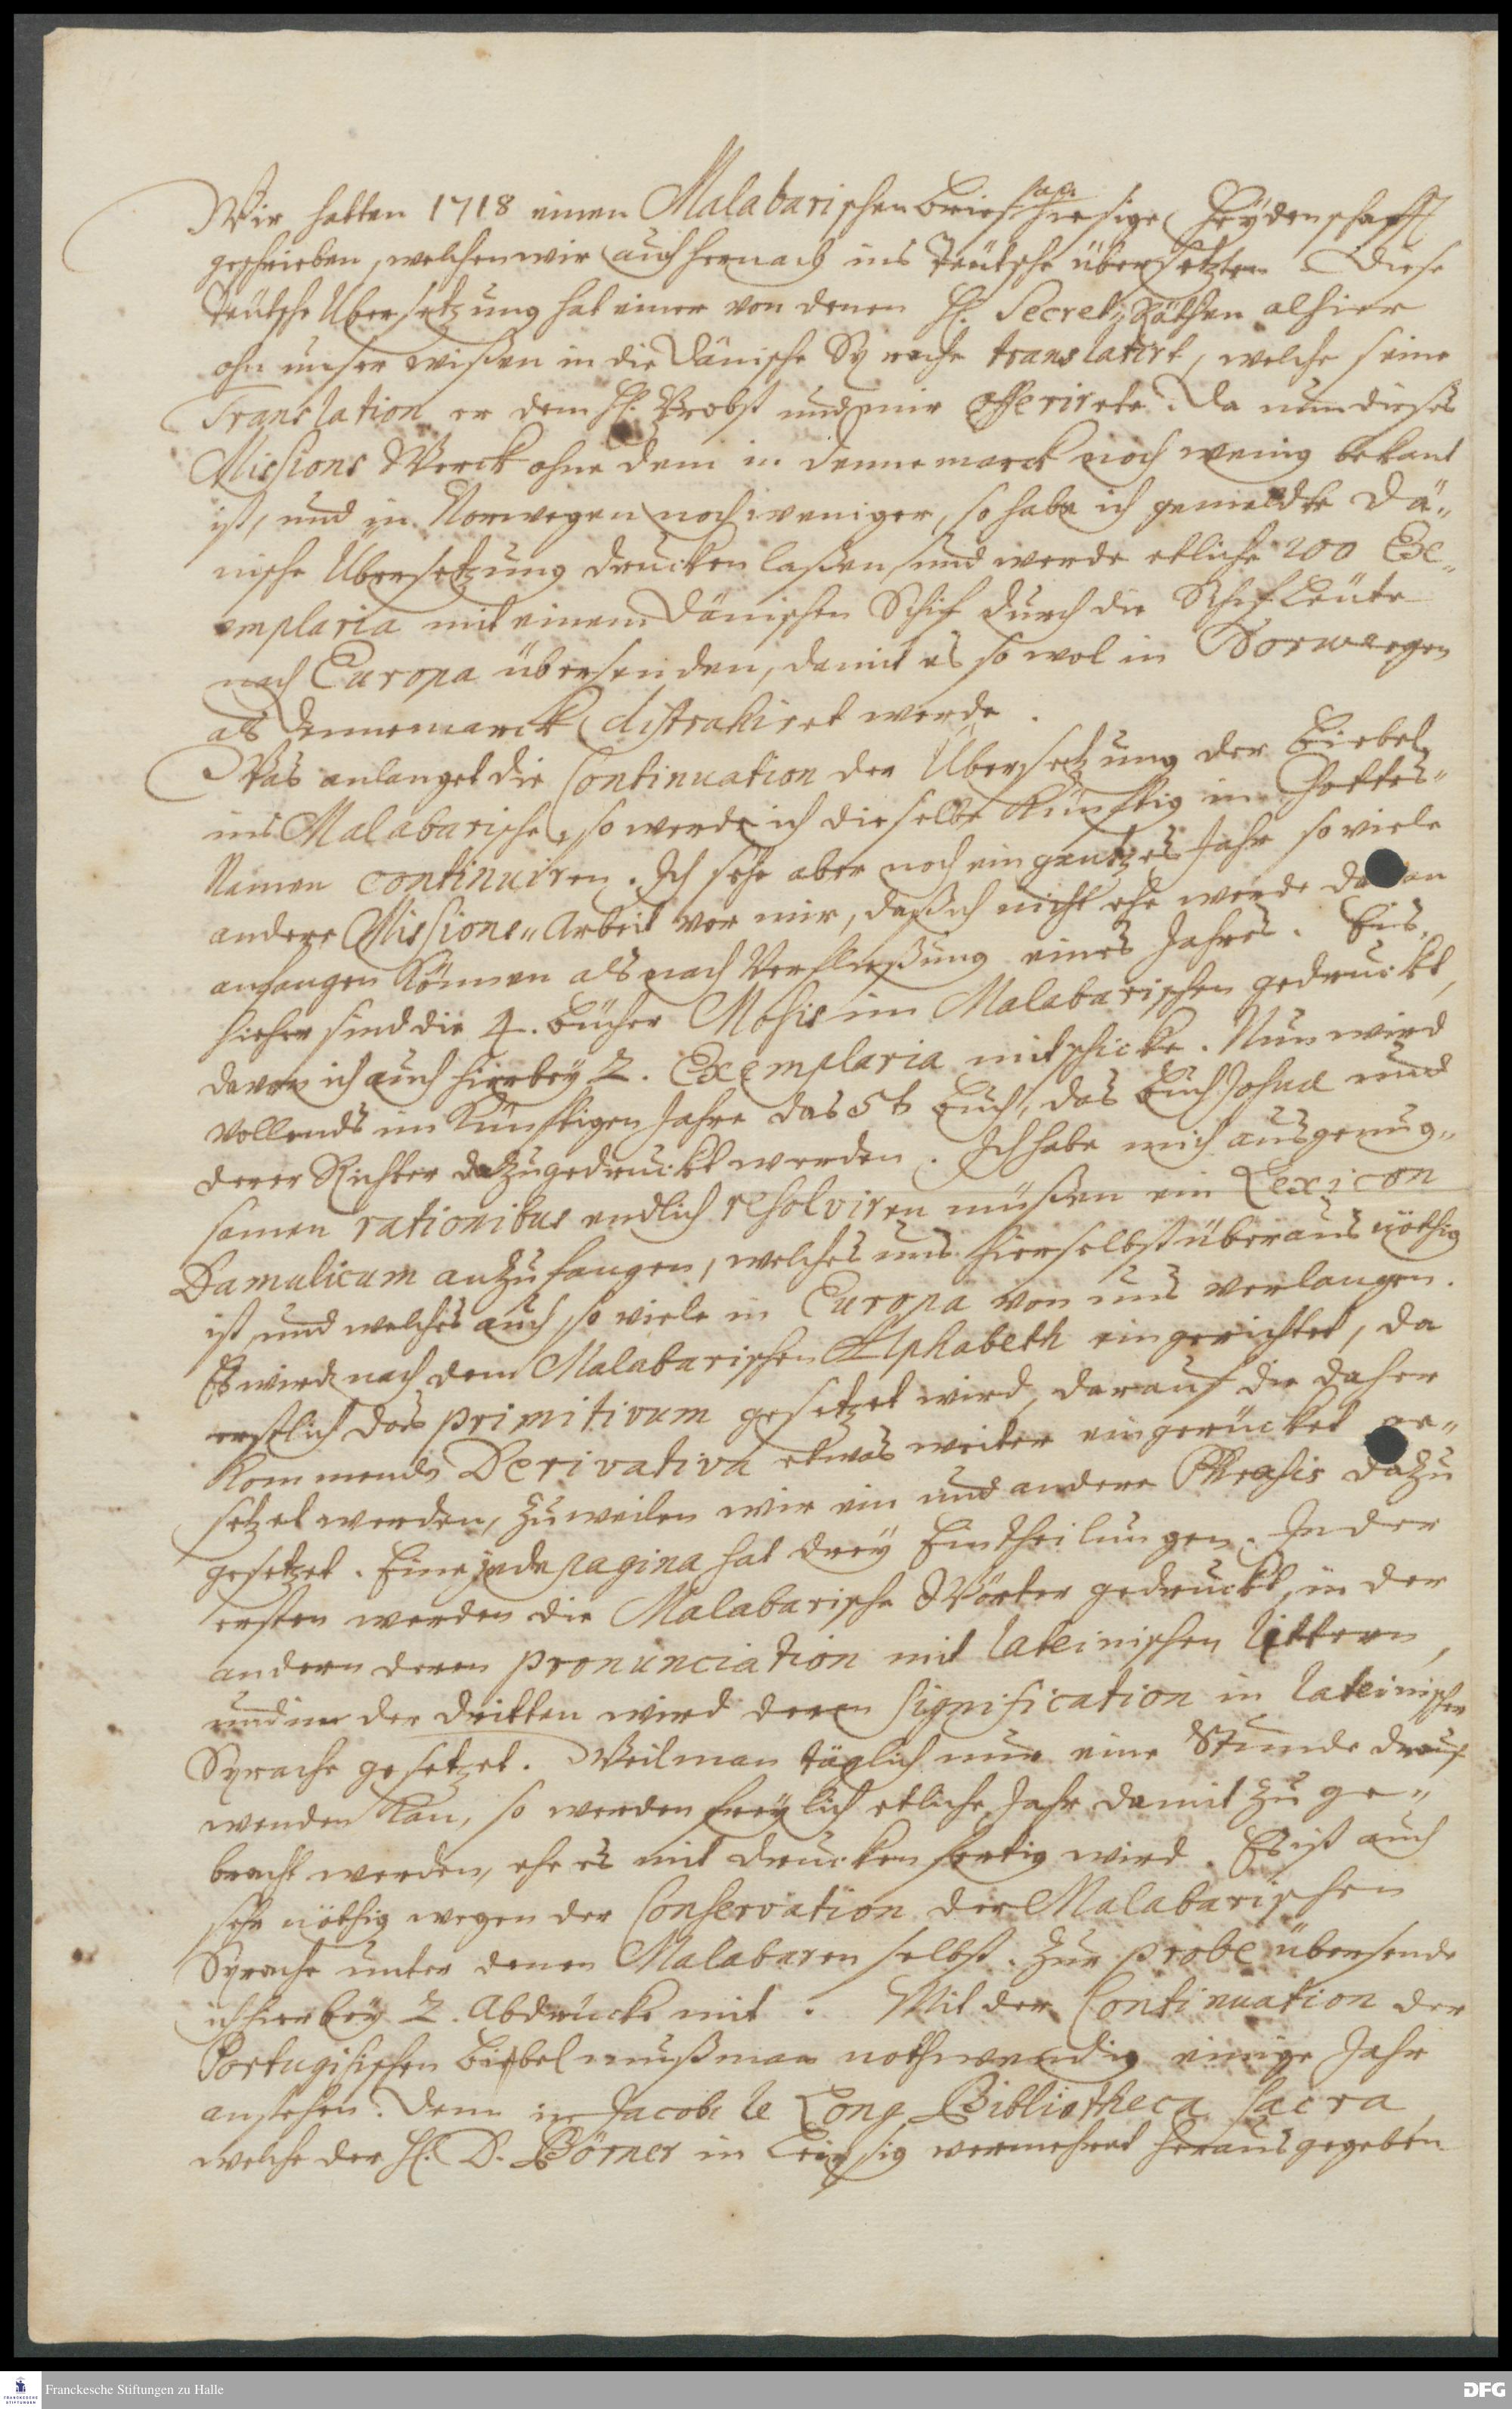 Wir hatten 1718 einen Malabarischen brief an hiesige Heydenschafft
geschrieben, welchen wir auch hernach ins teütsche übersetzten. Diese
teütsche Ubersetzung hat einer von denen H. Secret: Räthen alhier
ohn unser wißen in die Dänische Sprache translatirt, welche seine
Translation er dem H. Probst und mir offerirete. Da nun dieses
Missions Werck ohne dem in Dennemarck noch wenig bekant
ist, und in Norwegen noch weniger, so habe ich gemeldte Dä„
nische Ubersetzung drucken laßen, und werde etliche 200 Ex„
emplaria mit einem Dänischen Schif durch die Schif Leüte
nach Europa übersenden, damit es so wol in Norwegen
als Dennemarck distrahiret werde.
Was anlanget die Continuation der Übersetzung der Biebel
ins Malabarische, so werde ich dieselbe künfftig in Gottes„
Namen continuiren. Ich sehe aber noch ein gantzes Jahr so viele
andere Missions„ Arbeit vor mir, daß ich nicht ehe werde daran
anfangen können als nach Verfließung eines Jahres. Bis„
hieher sind die 4. bücher Mosis im Malabarischen gedruckt,
davon ich auch hierbey 2. Exemplaria mitschicke. Nun wird
vollends im künfftigen Jahre das 5t buch, das buch Josua und
derer Richter dazu gedruckt werden. Ich habe mich aus genug„
samen rationibus endlich resolviren müßen ein Lexicon
Damulicum anzufangen, welches uns hierselbst überaus nöthig
ist und welches auch so viele in Europa von uns verlangen.
Es wird nach dem Malabarischen Alphabeth eingerichtet, da
erstlich das primitivum gesetzet wird, darauf die daher
kommende Derivativa etwas weiter eingerücket ge„
setzet werden, zuweilen wir ein und andere Phrasis dazu
gesetzet. Eine jede pagina hat drey Eintheilungen. In der
ersten werden die Malabarische Wörter gedruckt, in der
andern deren pronunciation mit lateinischen littern,
und in der dritten wird deren signification in lateinischer
Sprache gesetzet. Weil man täglich nur eine Stunde drauf
wenden kan, so werden freylich etliche Jahr damit zu ge„
bracht werden, ehe es mit drucken fertig wird. Es ist auch
sehr nöthig wegen der Conservation der Malabarischen
Sprache unter denen Malabaren selbst. Zur probe übersende
ich hierbey 2. Abdrücke mit. Mit der Continuation der
Portugisischen biebel muß man nothwendig einige Jahr
anstehen. Denn in Jacobi le Long Bibliotheca sacra,
welche der H. D. Börner in Leipsig vermehret herausgegeben
Franckesche Stiftungen zu Halle
DFG